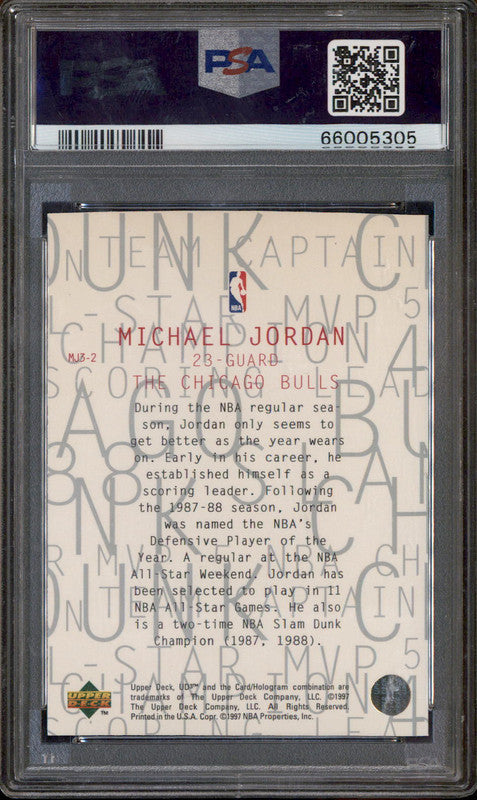 PSA
66005305
DUNK C
N TEAM CAPTAIN
L-STAR MVP 5
CHAMPION 4
SCORING LEAD
MICHAEL JORDAN
MJ3-2
23-GUARD
THE CHICAGO BULLS
During the NBA regular sea-
son, Jordan only seems to
get better as the year wears
on. Early in his career, he
established himself as a
scoring leader. Following
the 1987-88 season, Jordan
was named the NBA's
Defensive Player of the
Year. A regular at the NBA
All-Star Weekend, Jordan has
been selected to play in 11
NBA All-Star Games. He also
is a two-time NBA Slam Dunk
Champion (1987, 1988).
L-STAR MVP 5
UPPER
DECK
TM
Upper Deck, UD3™ and the Card/Hologram combination are
trademarks of The Upper Deck Company, LLC. ©1997
The Upper Deck Company, LLC. All Rights Reserved.
Printed in the U.S.A. Copr. ©1997 NBA Properties, Inc.
PSA